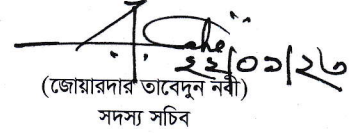 ২২|০১|২৩
(জোয়ারদার তাবেদুন নবী)
সদস্য সচিব